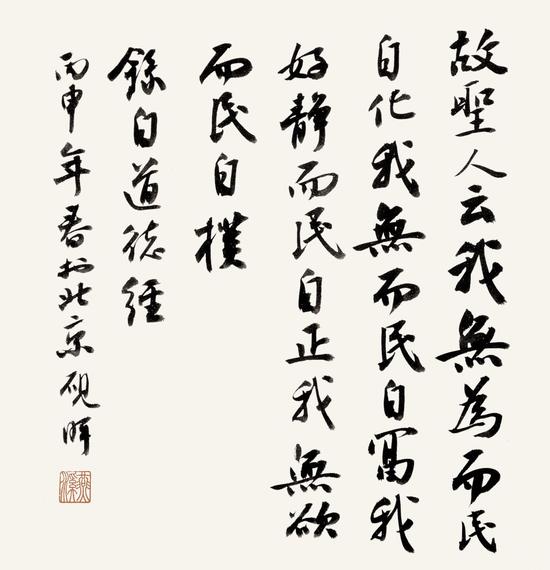 故聖人云我無為而民
自化我無而民自富我
好靜而民自正我無欲
而民自樸
錄自道德經
丙申年春於北京硯